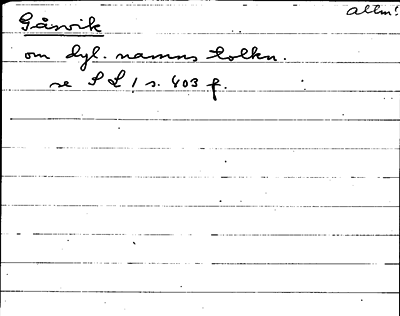 allm!
Gåsvik
om dyl. namns tolkn.
se S L 1 s. 403 f.